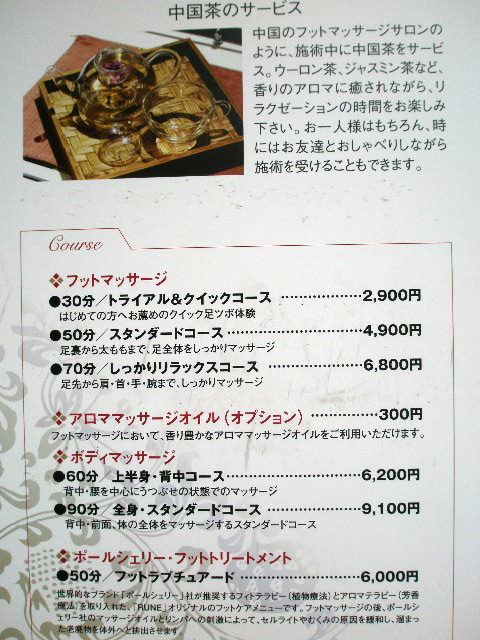 中国茶のサービス
中国のフットマッサージサロンの
ように、施術中に中国茶をサービ
ス。ウーロン茶、ジャスミン茶など、
香りのアロマに癒されながら、リ
ラクゼーションの時間をお楽しみ
下さい。お一人様はもちろん、時
にはお友達とおしゃべりしながら
施術を受けることもできます。
Course
❖フットマッサージ
●30分／トライアル&クイックコース ……………2,900円
はじめての方へお薦めのクイック足ツボ体験
●50分／スタンダードコース ……………………4,900円
足裏から太ももまで、足全体をしっかりマッサージ
●70分／しっかりリラックスコース ………………6,800円
足先から肩・首・手・腕まで、しっかりマッサージ
❖アロママッサージオイル（オプション） …………300円
フットマッサージにおいて、香り豊かなアロママッサージオイルをご利用いただけます。
❖ボディマッサージ
●60分／上半身・背中コース ……………………6,200円
背中・腰を中心にうつぶせの状態でのマッサージ
●90分 全身・スタンダードコース ………………9,100円
背中・前面、体の全体をマッサージするスタンダードコース
❖ポールシェリー・フットトリートメント
●50分／フットラプチュアード ……………………6,000円
世界的なブランド「ポールシェリー」社が推奨するフィトテラピー（植物療法）とアロマテラピー（芳香
療法）を取り入れた、「RUNE」オリジナルのフットケアメニューです。フットマッサージの後、ポールシェ
リー社のマッサージオイルとリンパへの刺激によって、セルライトやむくみの原因を緩和し、溜まっ
た老廃物を体外へと排出させます。